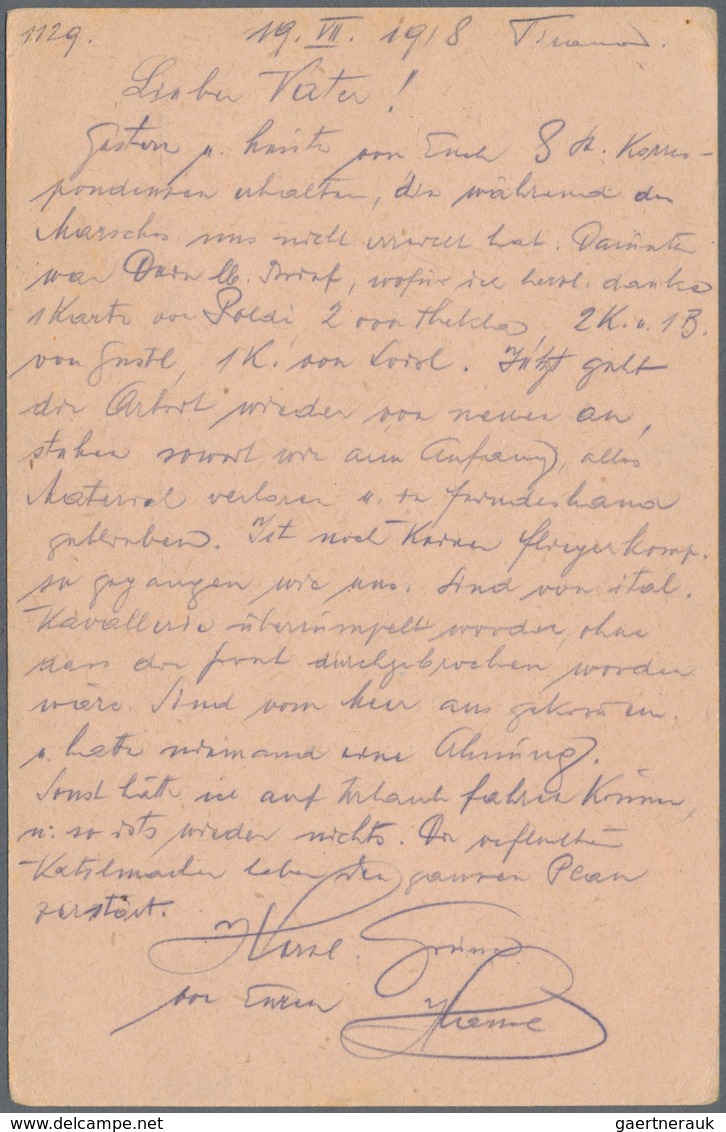 1129. 19. VII. 1918
Lieber Vater!
Gestern u. heute von Euch 8 St. Korres-
pondenzen erhalten, die während des
Marsches uns nicht erreicht hat. Darunter
war Dein lb. Brief, wofür ich herzl. danke
1 Karte von Poldi, 2 von Thekla 2 K. u. 1 B.
von Gustl, 1 K. von Loisl. Jetzt geht
die Arbeit wieder von neuen an,
stehen soweit wie am Anfang, alles
Material verloren u. in Feindeshand
geblieben. Ist noch keiner Fliegerkomp.
so gegangen wie uns. Sind von ital.
Kavallerie überrumpelt worden, ohne
dass die Front durchgebrochen worden
wäre. Sind vom Meer aus gekommen.
u. hatte niemand eine Ahnung.
Sonst hätte ich auf Urlaub fahren können,
u. so ists wieder nichts. Die verfluchten
Katzlmacher haben den ganzen Plan
zerstört.
Herzl. Grüße
von Euren